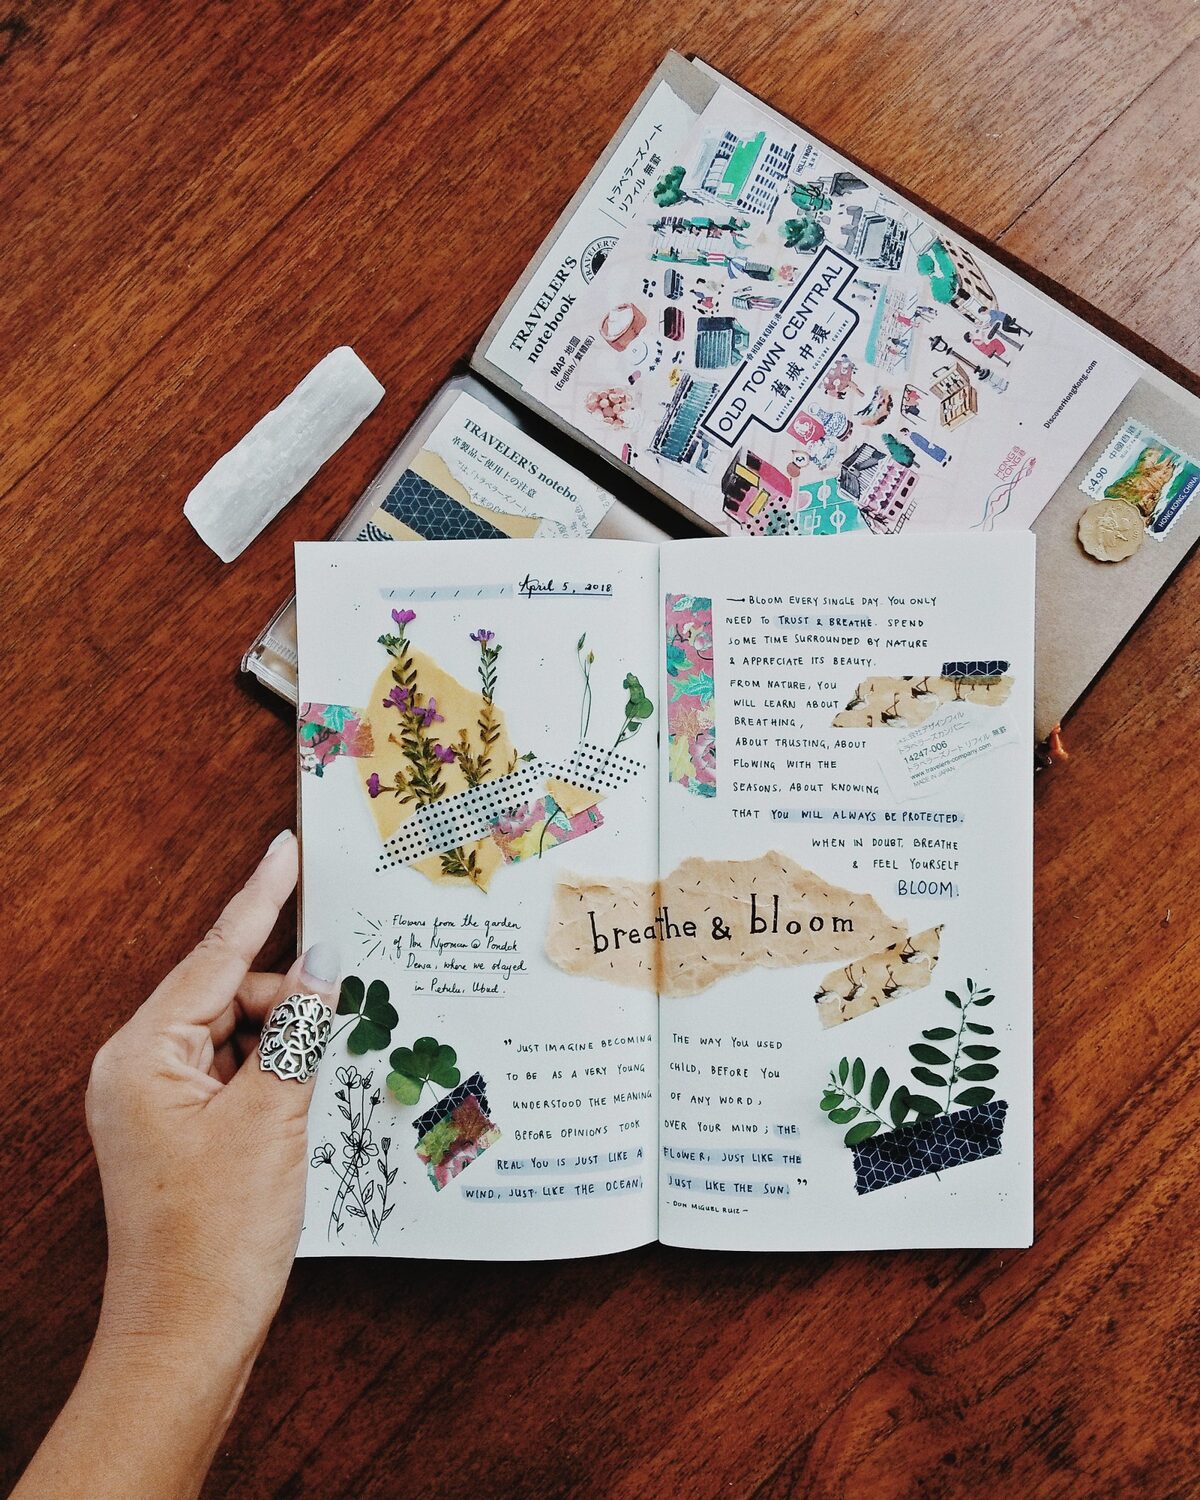 トラベラーズノート
リフィル 無罫
TRAVELER'S
TRAVELER'S
notebook
MAP 地圖
(English / 繁體版)
HOLLYWOOD
OLD TOWN CENTRAL
HONG KONG 港
舊城中環
HERITAGE ARTS CULTURE CUISINE
DiscoverHongKong.com
HONG
KONG
香港
中國香港
$4.90
HONG KONG, CHINA
TRAVELER'S notebo
革製品ご使用上の注意
April 5, 2018
BLOOM EVERY SINGLE DAY. YOU ONLY
NEED TO TRUST & BREATHE. SPEND
SOME TIME SURROUNDED BY NATURE
& APPRECIATE ITS BEAUTY.
FROM NATURE, YOU
WILL LEARN ABOUT
BREATHING,
ABOUT TRUSTING, ABOUT
FLOWING WITH THE
SEASONS, ABOUT KNOWING
THAT YOU WILL ALWAYS BE PROTECTED.
WHEN IN DOUBT, BREATHE
& FEEL YOURSELF
BLOOM.
会社デザインフィル
トラベラーズカンパニー
14247-006
トラベラーズノート リフィル 無罫
www.travelers-company.com
MADE IN JAPAN
breathe & bloom
Flowers from the garden
of Ibu Nyoman @ Pondok
Dewa, where we stayed
in Petulu, Ubud.
"JUST IMAGINE BECOMING THE WAY YOU USED
TO BE AS A VERY YOUNG CHILD, BEFORE YOU
UNDERSTOOD THE MEANING OF ANY WORD,
BEFORE OPINIONS TOOK OVER YOUR MIND; THE
REAL YOU IS JUST LIKE A FLOWER, JUST LIKE THE
WIND, JUST LIKE THE OCEAN, JUST LIKE THE SUN."
- DON MIGUEL RUIZ -